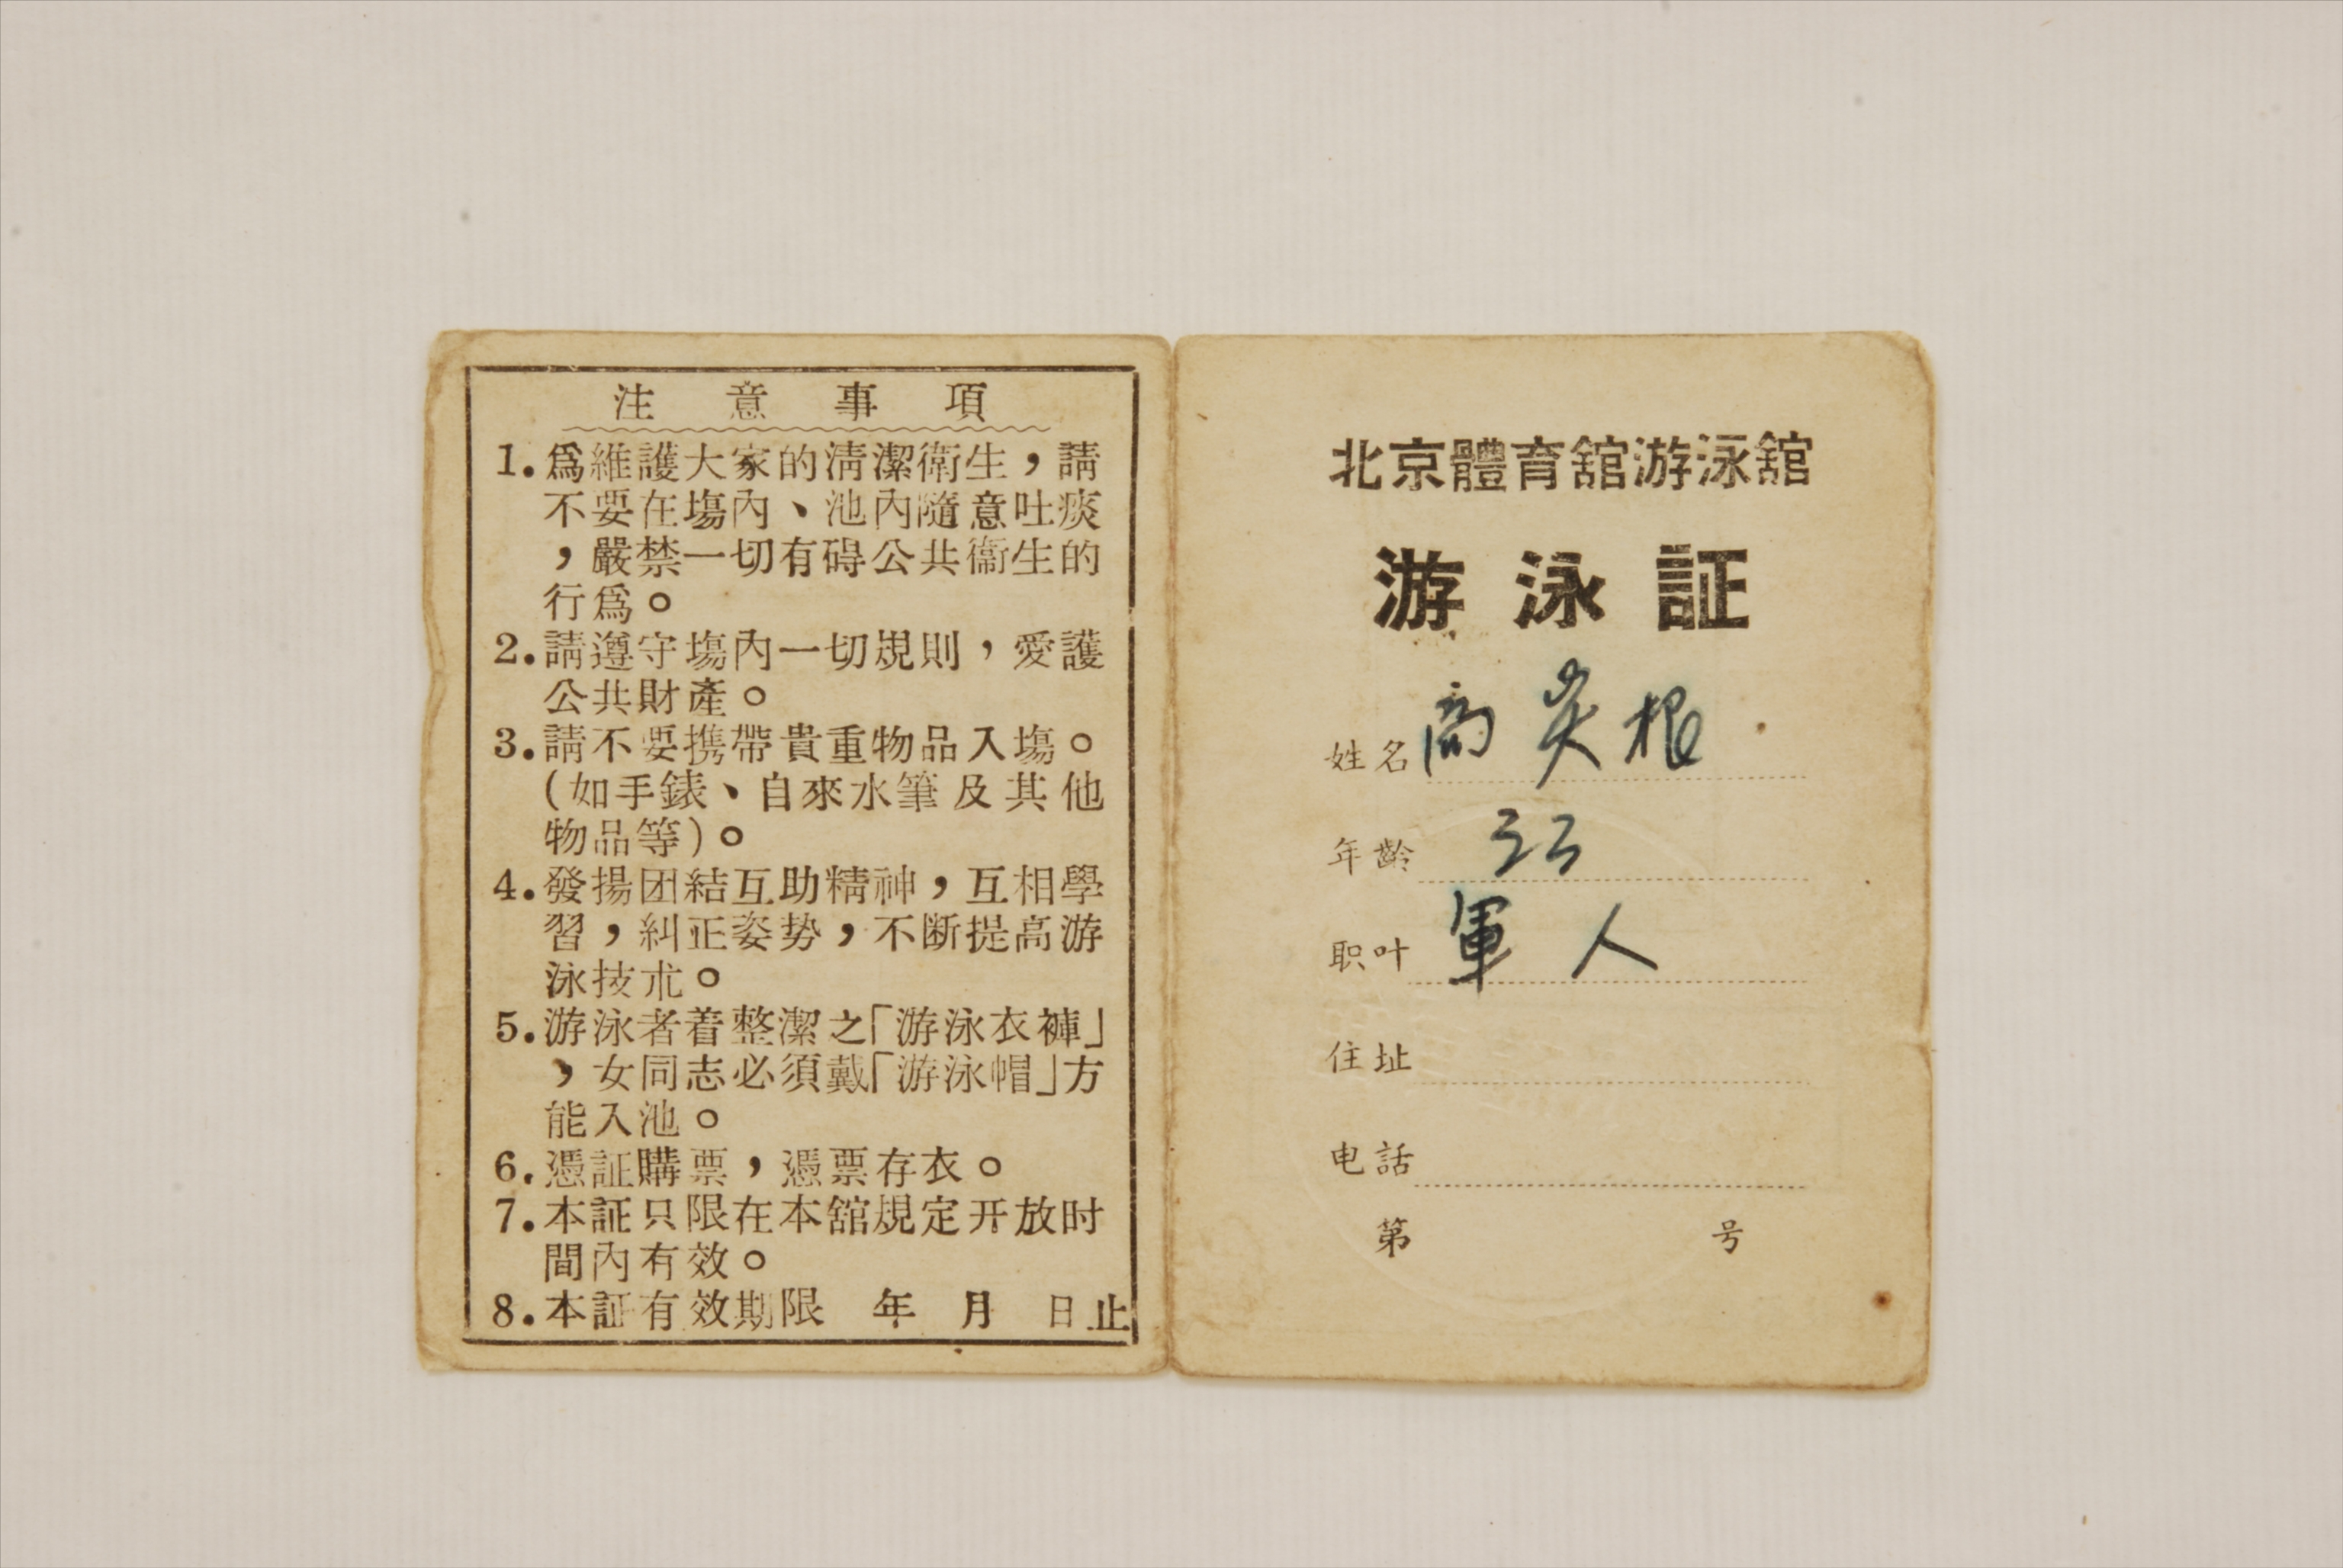 注意事項
1.爲維護大家的淸潔衛生，請
不要在塲內、池內隨意吐痰
，嚴禁一切有碍公共衞生的
行爲。
2.請遵守塲內一切規則，愛護
公共財產。
3.請不要携帶貴重物品入塲。
(如手錶、自來水筆及其他
物品等)。
4.發揚团結互助精神，互相學
習，糾正姿势，不断提高游
泳技朮。
5.游泳者着整潔之「游泳衣褲」
，女同志必須戴「游泳帽」方
能入池。
6.憑証購票，憑票存衣。
7.本証只限在本舘規定开放时
間內有效。
8.本証有效期限 年 月 日止
北京體育舘游泳舘
游泳証
姓名 高炎根
年齡
职叶 軍人
住址
电話
第 号